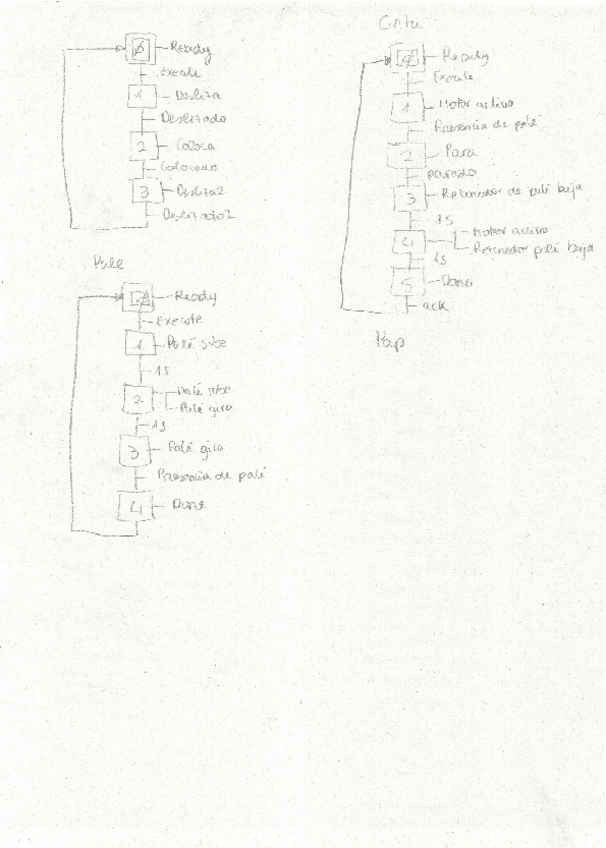 Ø Ready
Execute
1 Desliza
Deslizado
2 Coloca
Colocado
3 Desliza2
Deslizado2
Palé
Ø Ready
Execute
1 Palé sube
1s
2 Palé sube
Palé gira
1s
3 Palé gira
Presencia de palé
4 Done
Cinta
Ø Ready
Execute
1 Motor activo
Presencia de palé
2 Para
parado
3 Retenedor de palé baja
1s
4 Motor activo
Retenedor palé baja
1s
5 Done
ack